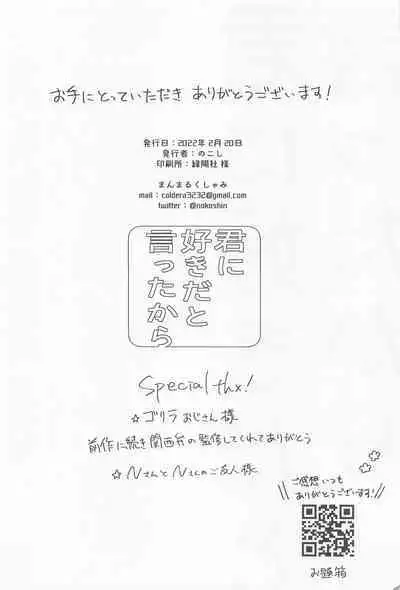 お手にとっていただき ありがとうございます！
発行日：2022年 2月 20日
発行者：のこし
印刷所：緑陽社 様
まんまるくしゃみ
mail：caldera3232@gmail.com
twitter：@nokoshin
君に
好きだと
言ったから
Special thx!
☆ ゴリラ おじさん 様
前作に続き関西弁の監修してくれてありがとう
☆ NさんとNさんのご友人様
ご感想いつも
ありがとうございます！
お題箱